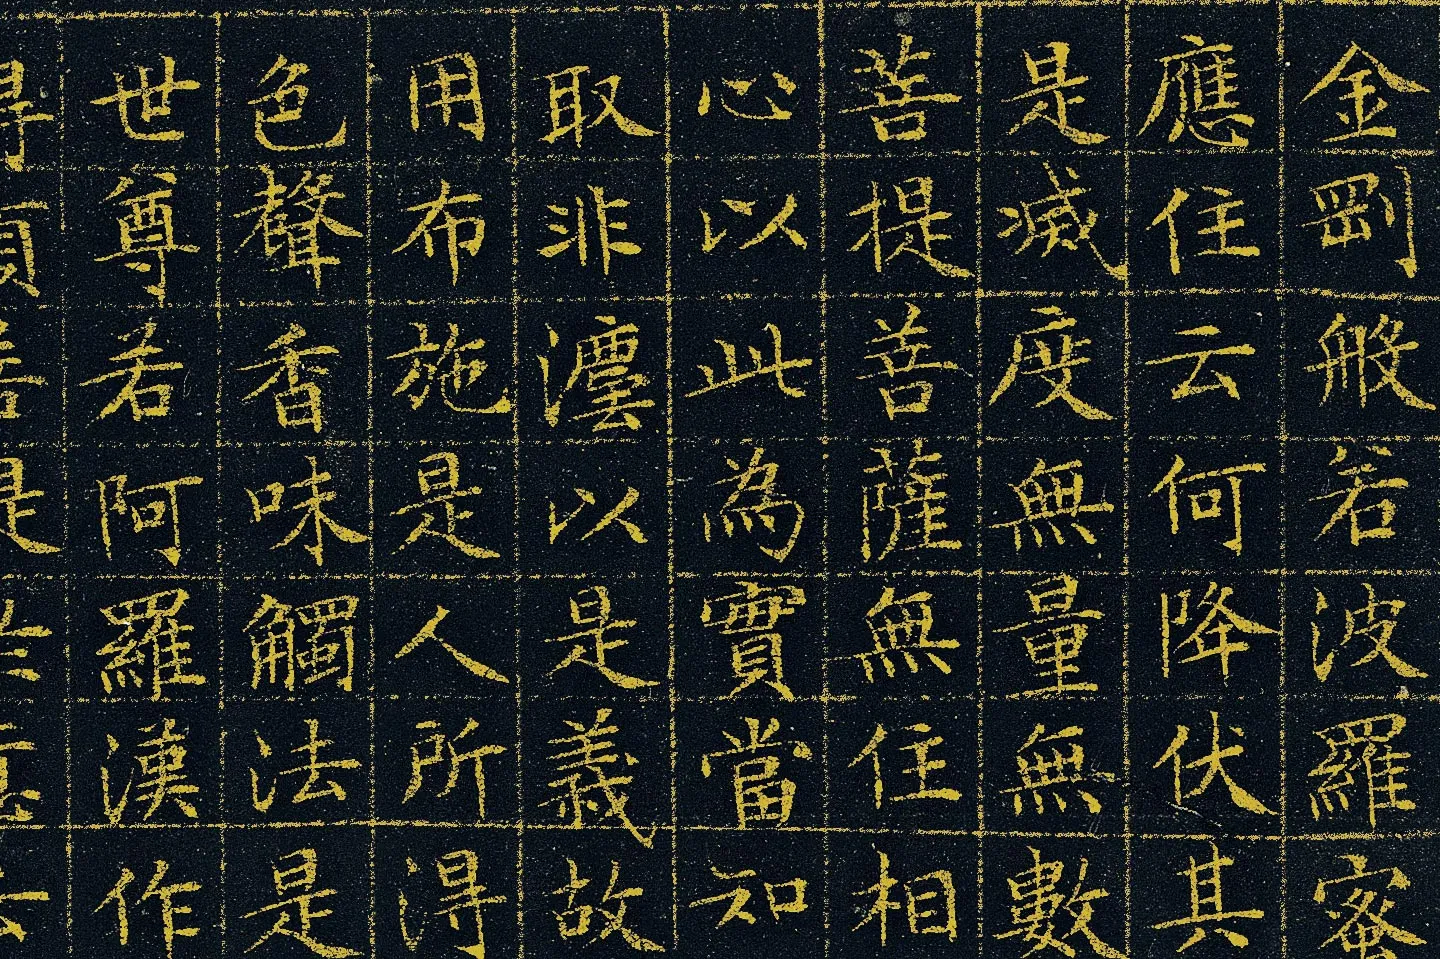 金剛般若波羅蜜
應住云何降伏其
是滅度無量無數
菩提菩薩無住相
心以此為實當知
取非灋以是義故
用布施是人所得
色聲香味觸法是
世尊若阿羅漢作